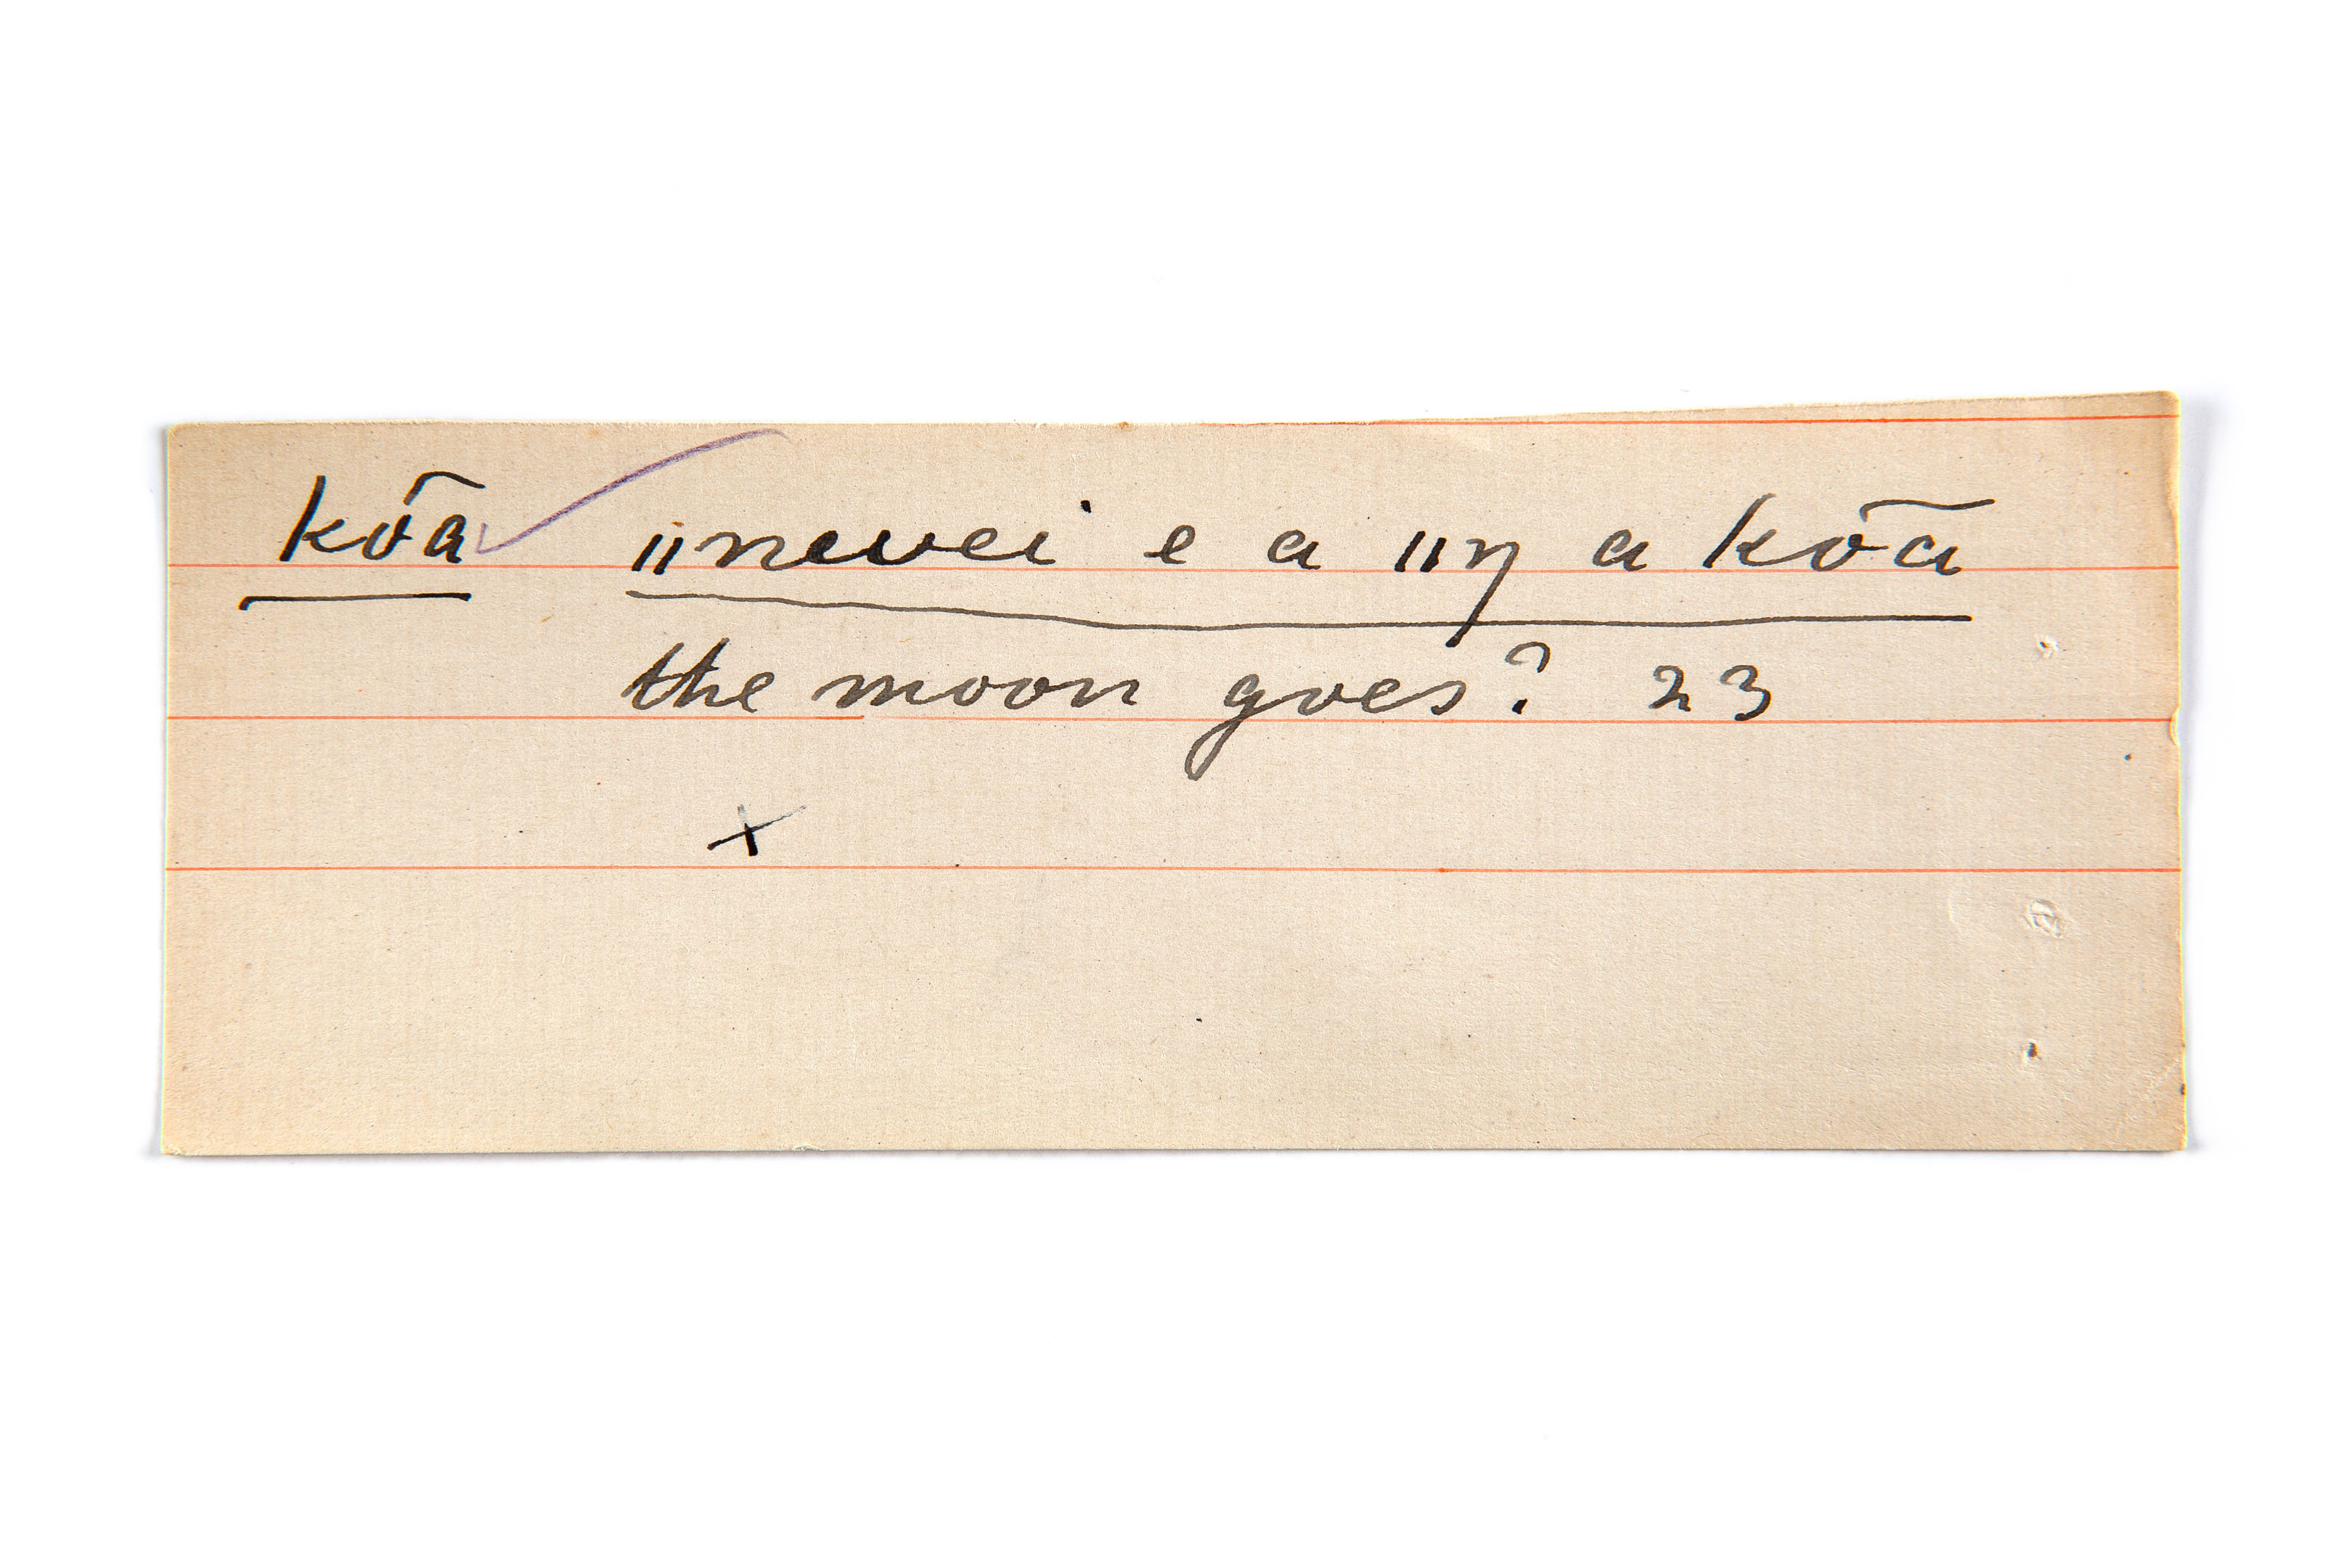 kōa ǁnevei e a ǁŋ a kōa
the moon goes? 23
x